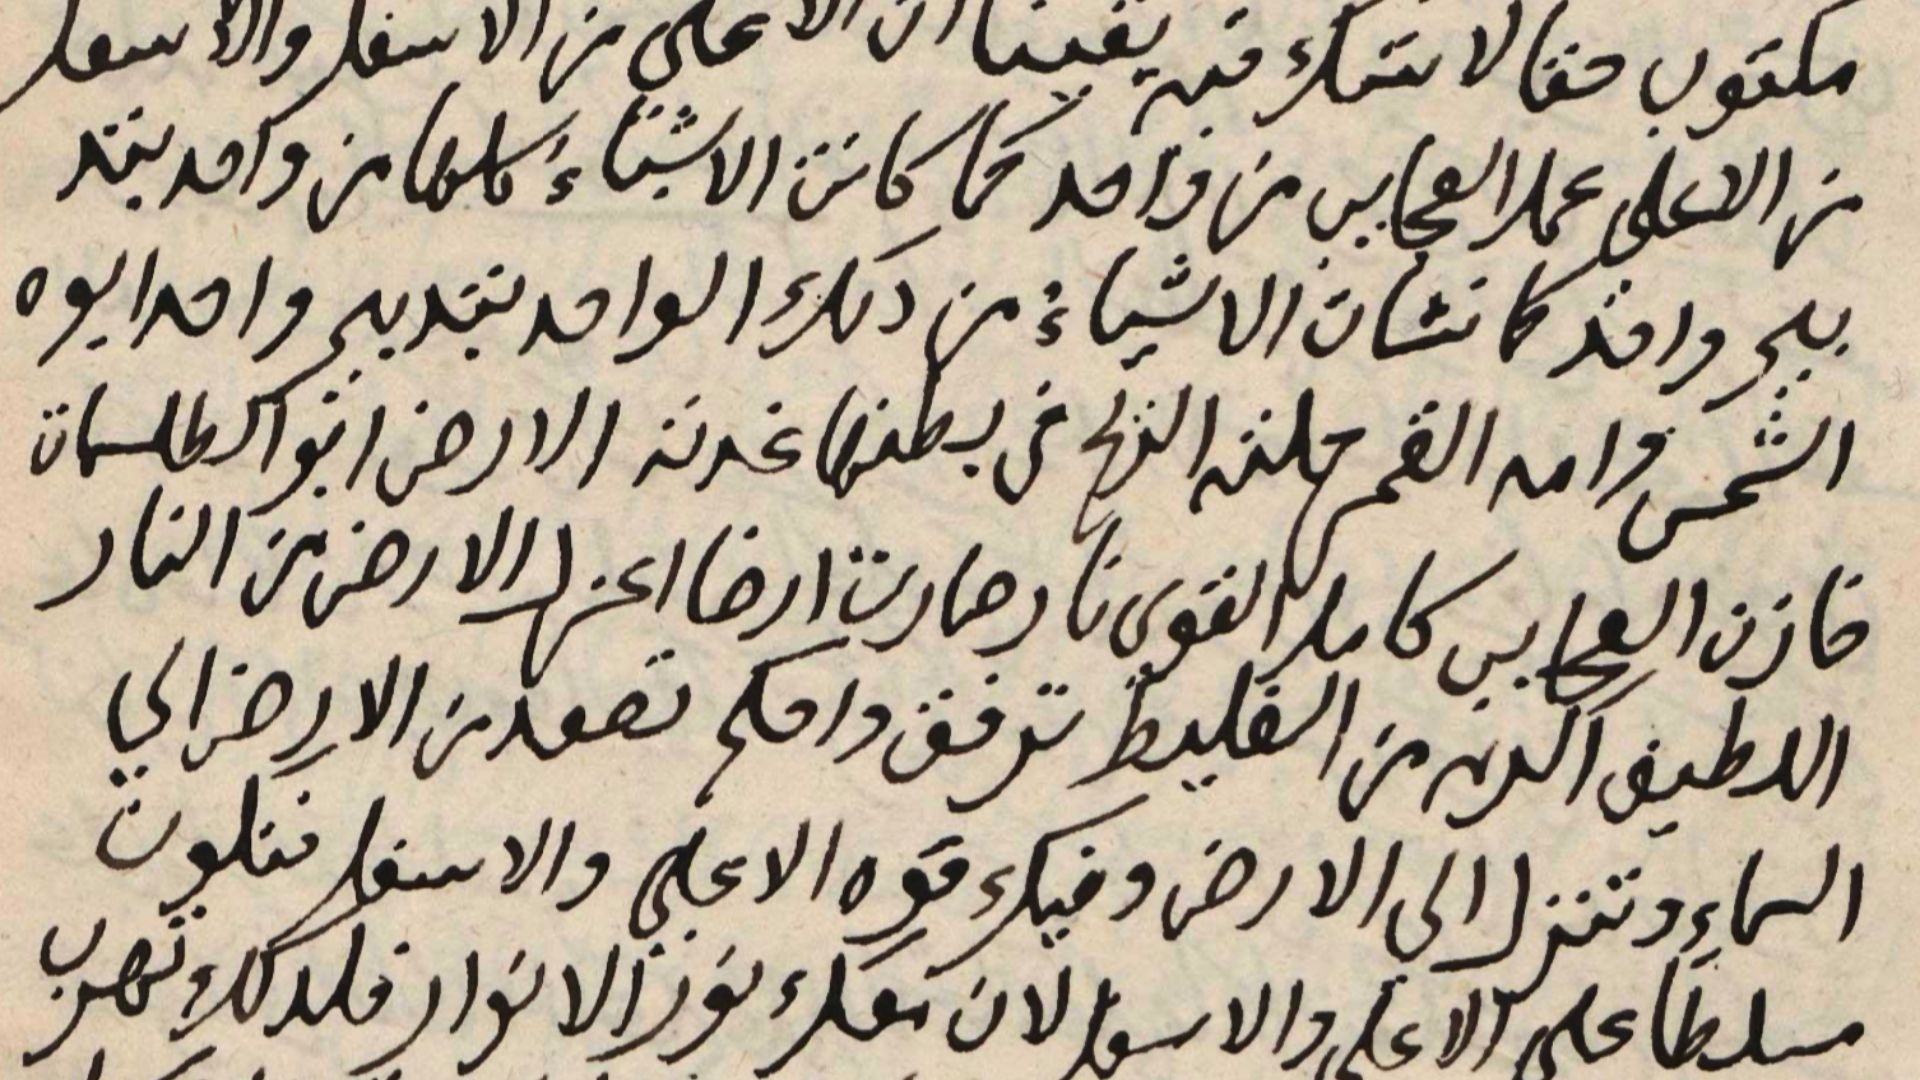 مكتوب حقا لا شك فيه يقينا ان الاعلى من الاسفل والاسفل
من الاعلى عمل العجايب من واحد كما كانت الاشياء كلها من واحد بتد
بير واحد كما نشات الاشياء من ذلك الواحد بتدبير واحد ابوه
الشمس وامه القمر حملته الريح في بطنها غدته الارض ابو الطلسمات
خازن العجايب كامل القوى نار صارت ارضا اعزل الارض من النار
اللطيف اكرم من الغليظ ترفق واحكم تصعد من الارض الى
السماء وتنزل الى الارض وفيك قوه الاعلى والاسفل فتكون
مسلطا على الاعلى والاسفل لان معك نور الانوار فلدلك تهرب